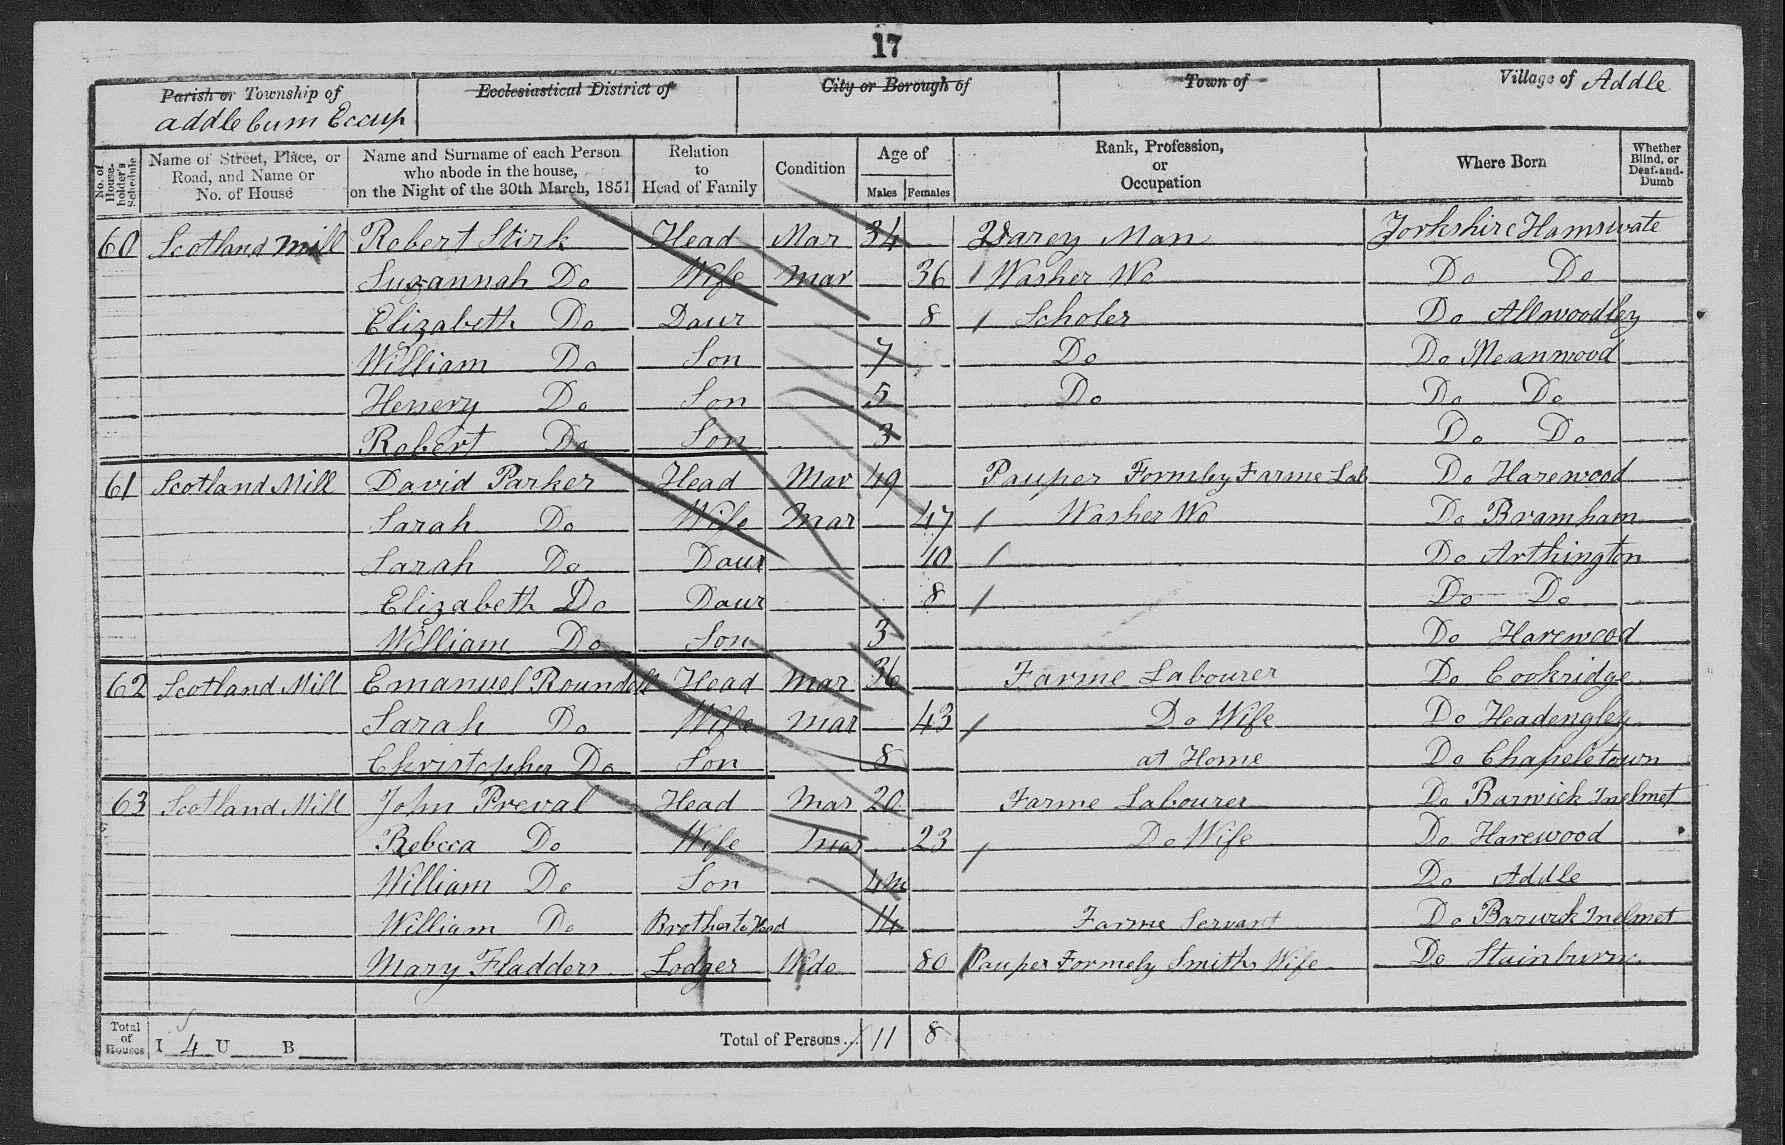 17
Parish or Township of
Addle cum Eccup
Ecclesiastical District of
City or Borough of
Town of
Village of Addle
No. of House-holder's Schedule
Name of Street, Place, or Road, and Name or No. of House
Name and Surname of each Person who abode in the house, on the Night of the 30th March, 1851
Relation to Head of Family
Condition
Age of
Males Females
Rank, Profession, or Occupation
Where Born
Whether Blind, or Deaf-and-Dumb
60 Scotland Mill Robert Stirk Head Mar 34 Man Yorkshire
Suzannah Do Wife Mar 36 Washer Wo Do Do
Elizabeth Do Daur 8 Scholer Do Allwoodley
William Do Son 7 Do Do Meanwood
Henery Do Son 5 Do Do Do
Robert Do Son 3 Do Do
61 Scotland Mill David Parker Head Mar 49 Pauper Formley Farme Lab Do Harewood
Sarah Do Wife Mar 47 Washer Wo Do Bramham
Sarah Do Daur 10 Do Arthington
Elizabeth Do Daur 8 Do Do
William Do Son 3 Do Harewood
62 Scotland Mill Emanuel Roundall Head Mar 36 Farme Labourer Do Cookridge
Sarah Do Wife Mar 43 Do Wife Do Headengley
Christopher Do Son 8 at Home Do Chapeletown
63 Scotland Mill John Preval Head Mar 20 Farme Labourer Do Barwick Inelmet
Rebeca Do Wife Mar 23 Do Wife Do Harewood
William Do Son 4m Do Addle
William Do Brother to Head 14 Farme Servant Do Barwick Inelmet
Mary Fladders Lodger Wido 80 Pauper Formely Smiths Wife Do Stainburn
Total of Houses I 4 U B Total of Persons 11 8